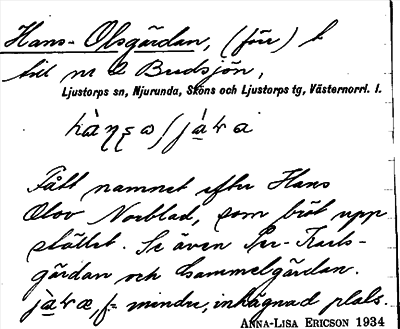 Hans-Olsgärdan, (för) t
till nr 2 Budsjön,
Ljustorps sn, Njurunda, Sköns och Ljustorps tg, Västernorrl. l.
Fått namnet efter Hans
Olov Norblad, som bröt upp
stället. Se även Per-Karls-
gärdan och Gammelgärdan.
f = mindre, inhägnad plats.
ANNA-LISA ERICSON 1934